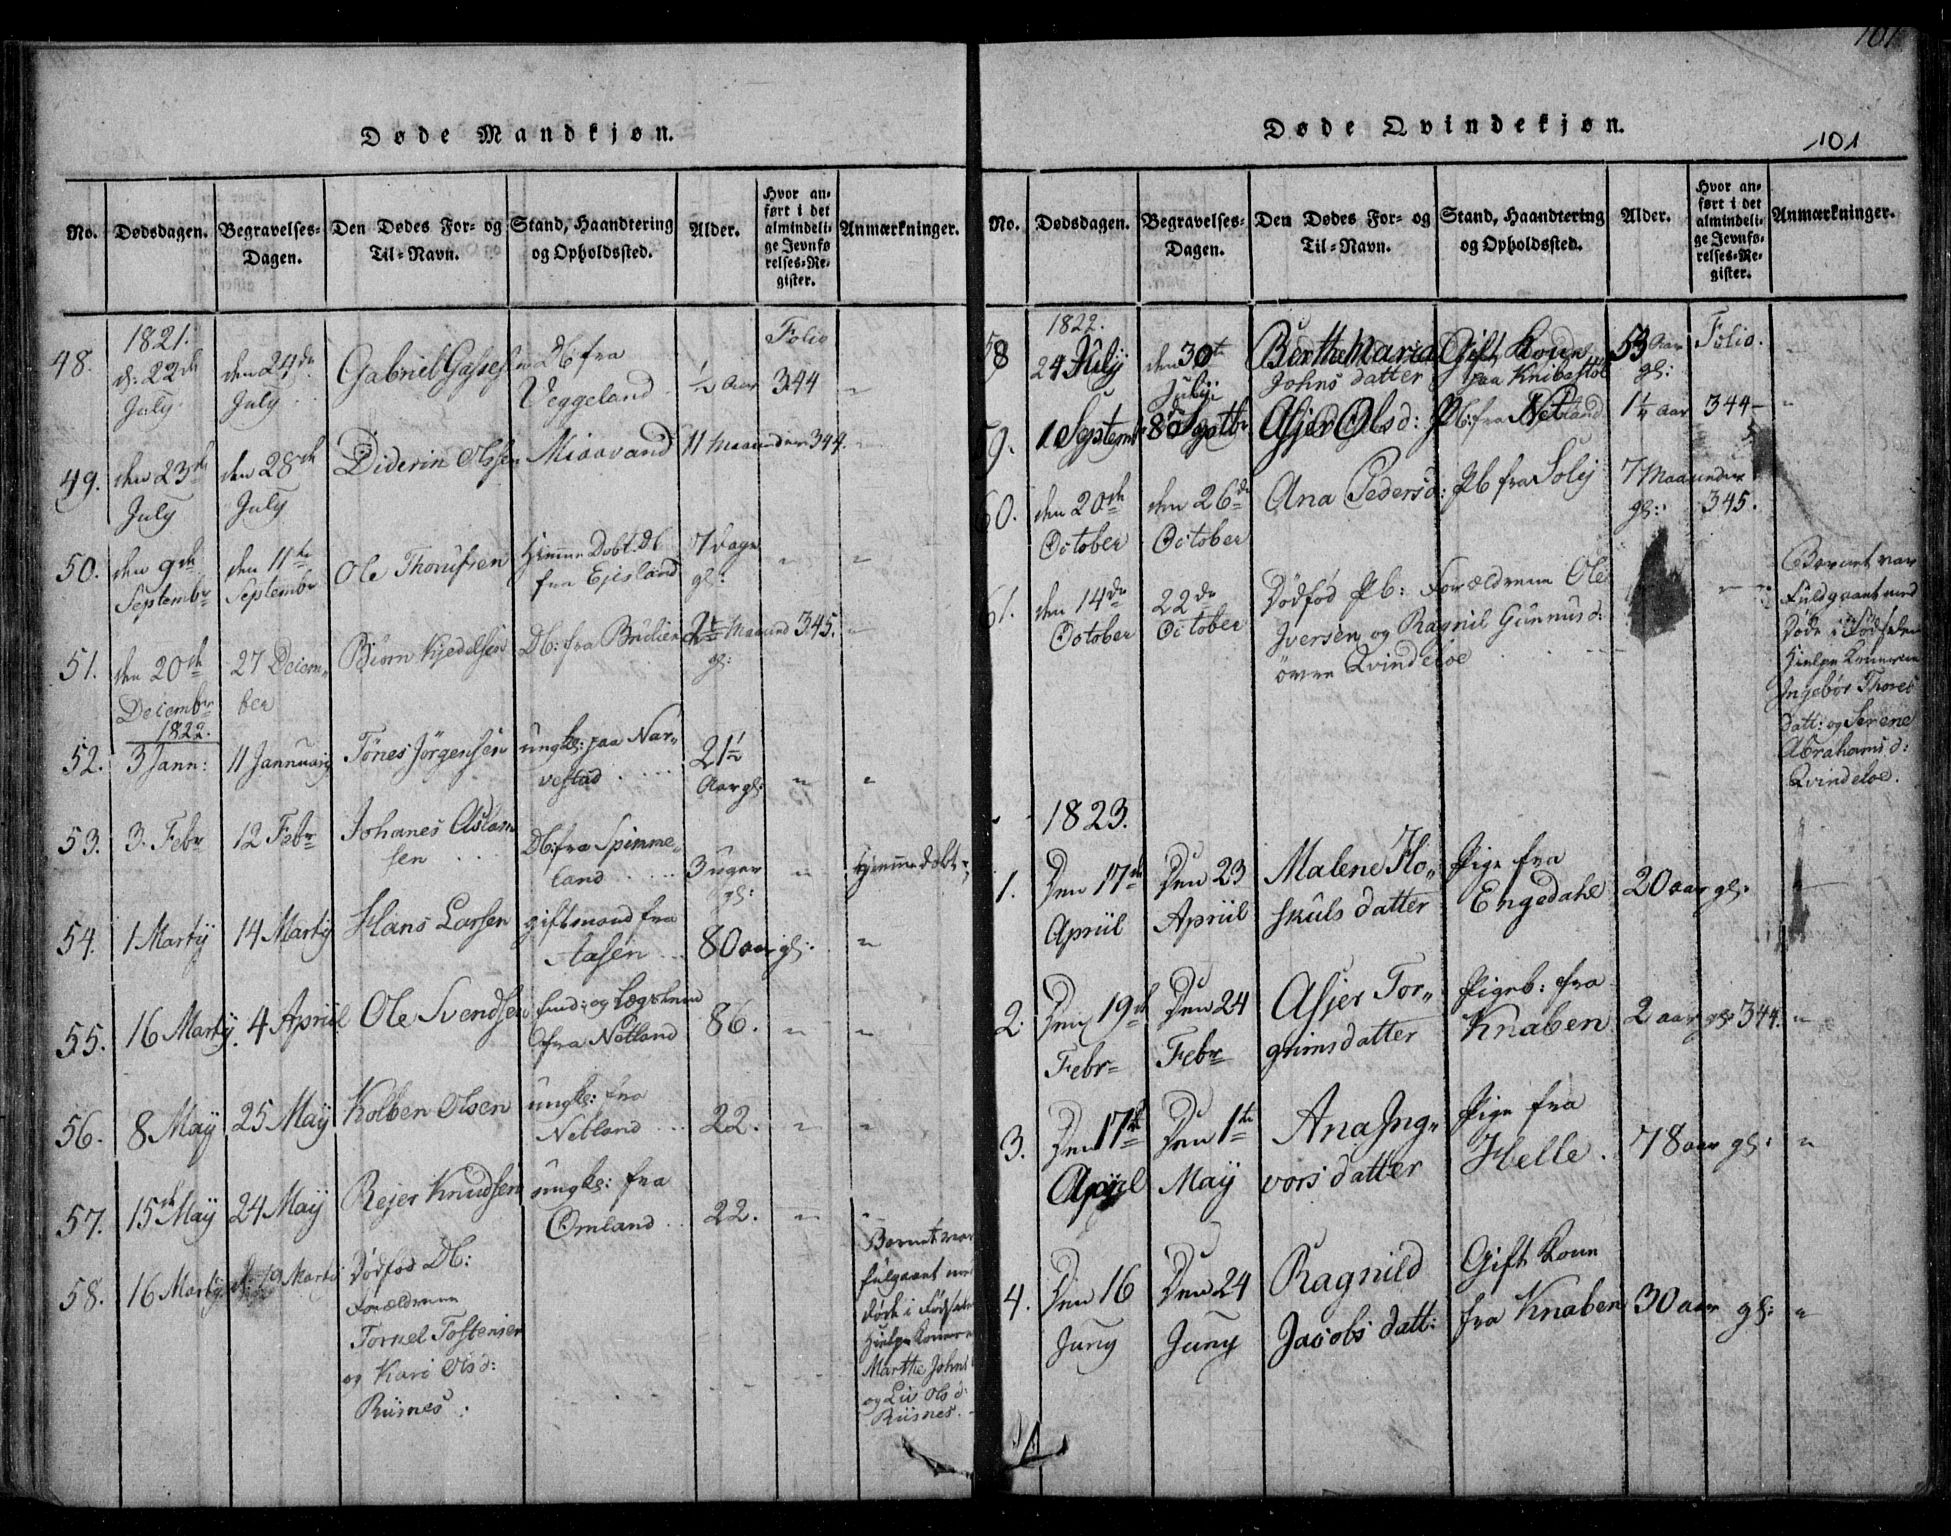 Døde Mandkjøn.
No.
Dødsdagen.
Begravelses-
Dagen.
Den Dødes For- og
Til-Navn.
Stand, Haandtering
og Opholdssted.
Alder.
Hvor an-
ført i det
almindeli-
ge Jevnfø-
relses-Re-
gister.
Anmærkninger.
1821.
Folio
48.
d: 22de
July
den 24de
July
Gabriel
Db fra
Veggeland
½ Aar
344
"
49.
den 23de
July
den 28de
July
Diderin Olsen
Mioavand
11 Maaneder
344.
50.
den 9de
Septembr
den 11te
Septembr
Ole
Hiemme Døbt Db
fra Ejesland
7 Dage
gl:
"
"
51.
den 20de
Decembr
27 Decem-
ber
Biørn Kjedelsen
Db: fra
Maaned
gl:
345.
"
1822.
52.
3 Jann:
11 Jannuarij
Tønes Jørgensen
ungk: paa Nar-
vestad
21½
Aar gl:
"
"
53.
3. Febr
12 Febr
Johanes Aslac
sen
Db: fra Spinme-
land
3 uger
gl:
"
Hjemme døbt
54.
1 Martÿ
14 Martÿ
Hans Larsen
gift mand fra
Aasen
80 aar gl:
"
55.
16 Martÿ
4 Apriil
Ole Svendsen
og Lægslem
fra Netland
86.
"
"
56.
8 Maÿ
25 Maÿ
Kolben Olsen
ungk: fra
Netland
22.
"
"
57.
15de Maÿ
24 Maÿ
Rejer Knudsen
ungk: fra
Omland
22.
"
58.
16 Martÿ
Martÿ
Dødfød Db:
Forældrene
Tormel Tostensen
og Kari Olsd:
Riisnes.
Barnet var
fulgaaet
døde i Fødselen
Hielpe Koner
Marthe Johns
og Liv Olsd
Riisnes.
Døde Qvindekjøn.
101
101
No.
Dødsdagen.
Begravelses-
Dagen.
Den Dødes For- og
Til-Navn.
Stand, Haandtering
og Opholdssted.
Alder.
Hvor an-
ført i det
almindeli-
ge Jevnfø-
relses-Re-
gister.
Anmærkninger.
1822.
58
24 Julÿ
den 30te
Julÿ
Berthe Maria
Johns datter
Gift Kone
paa Knibestøl
53 Aar
gl:
Folio.
59.
1 Septembr
8de Septbr
Asjer Olsd:
Pb: fra Netland
1¼ aar
344
"
60.
den 20de
October
den 26de
October
Ana Pedersd:
Pb fra Solej
7 Maaneder
gl:
345.
61.
den 14de
October
22de
October
Dødfød Pb: Forældrene Ole
Iversen og Ragnil Gunnusd:
øvre Qvindeloe
Barnet var
Fuldgaaet
Døde i Fødselen
Hielpe Konerne
Ingebor Thores
datt: og Serene
Abrahamsd:
Qvindeloe.
1823.
1.
Den 17de
Apriil
Den 23
Apriil
Malene Ho-
skuls datter
Pige fra
Engedahl
20 aar gl:
2.
Den 19de
Febr
Den 24
Febr
Asjer Tor-
grimsdatter
Pigeb: fra
Knaben
2 aar gl:
344.
"
3.
Den 17de
Apriil
Den 1te
Maÿ
Ana Ing-
vors datter
Pige fra
Helle.
78 aar gl:
"
4.
Den 16
Juny
Den 24
Juny
Ragnild
Jacobs datt:
Gift Kone
fra Knaben
30 aar gl:
"